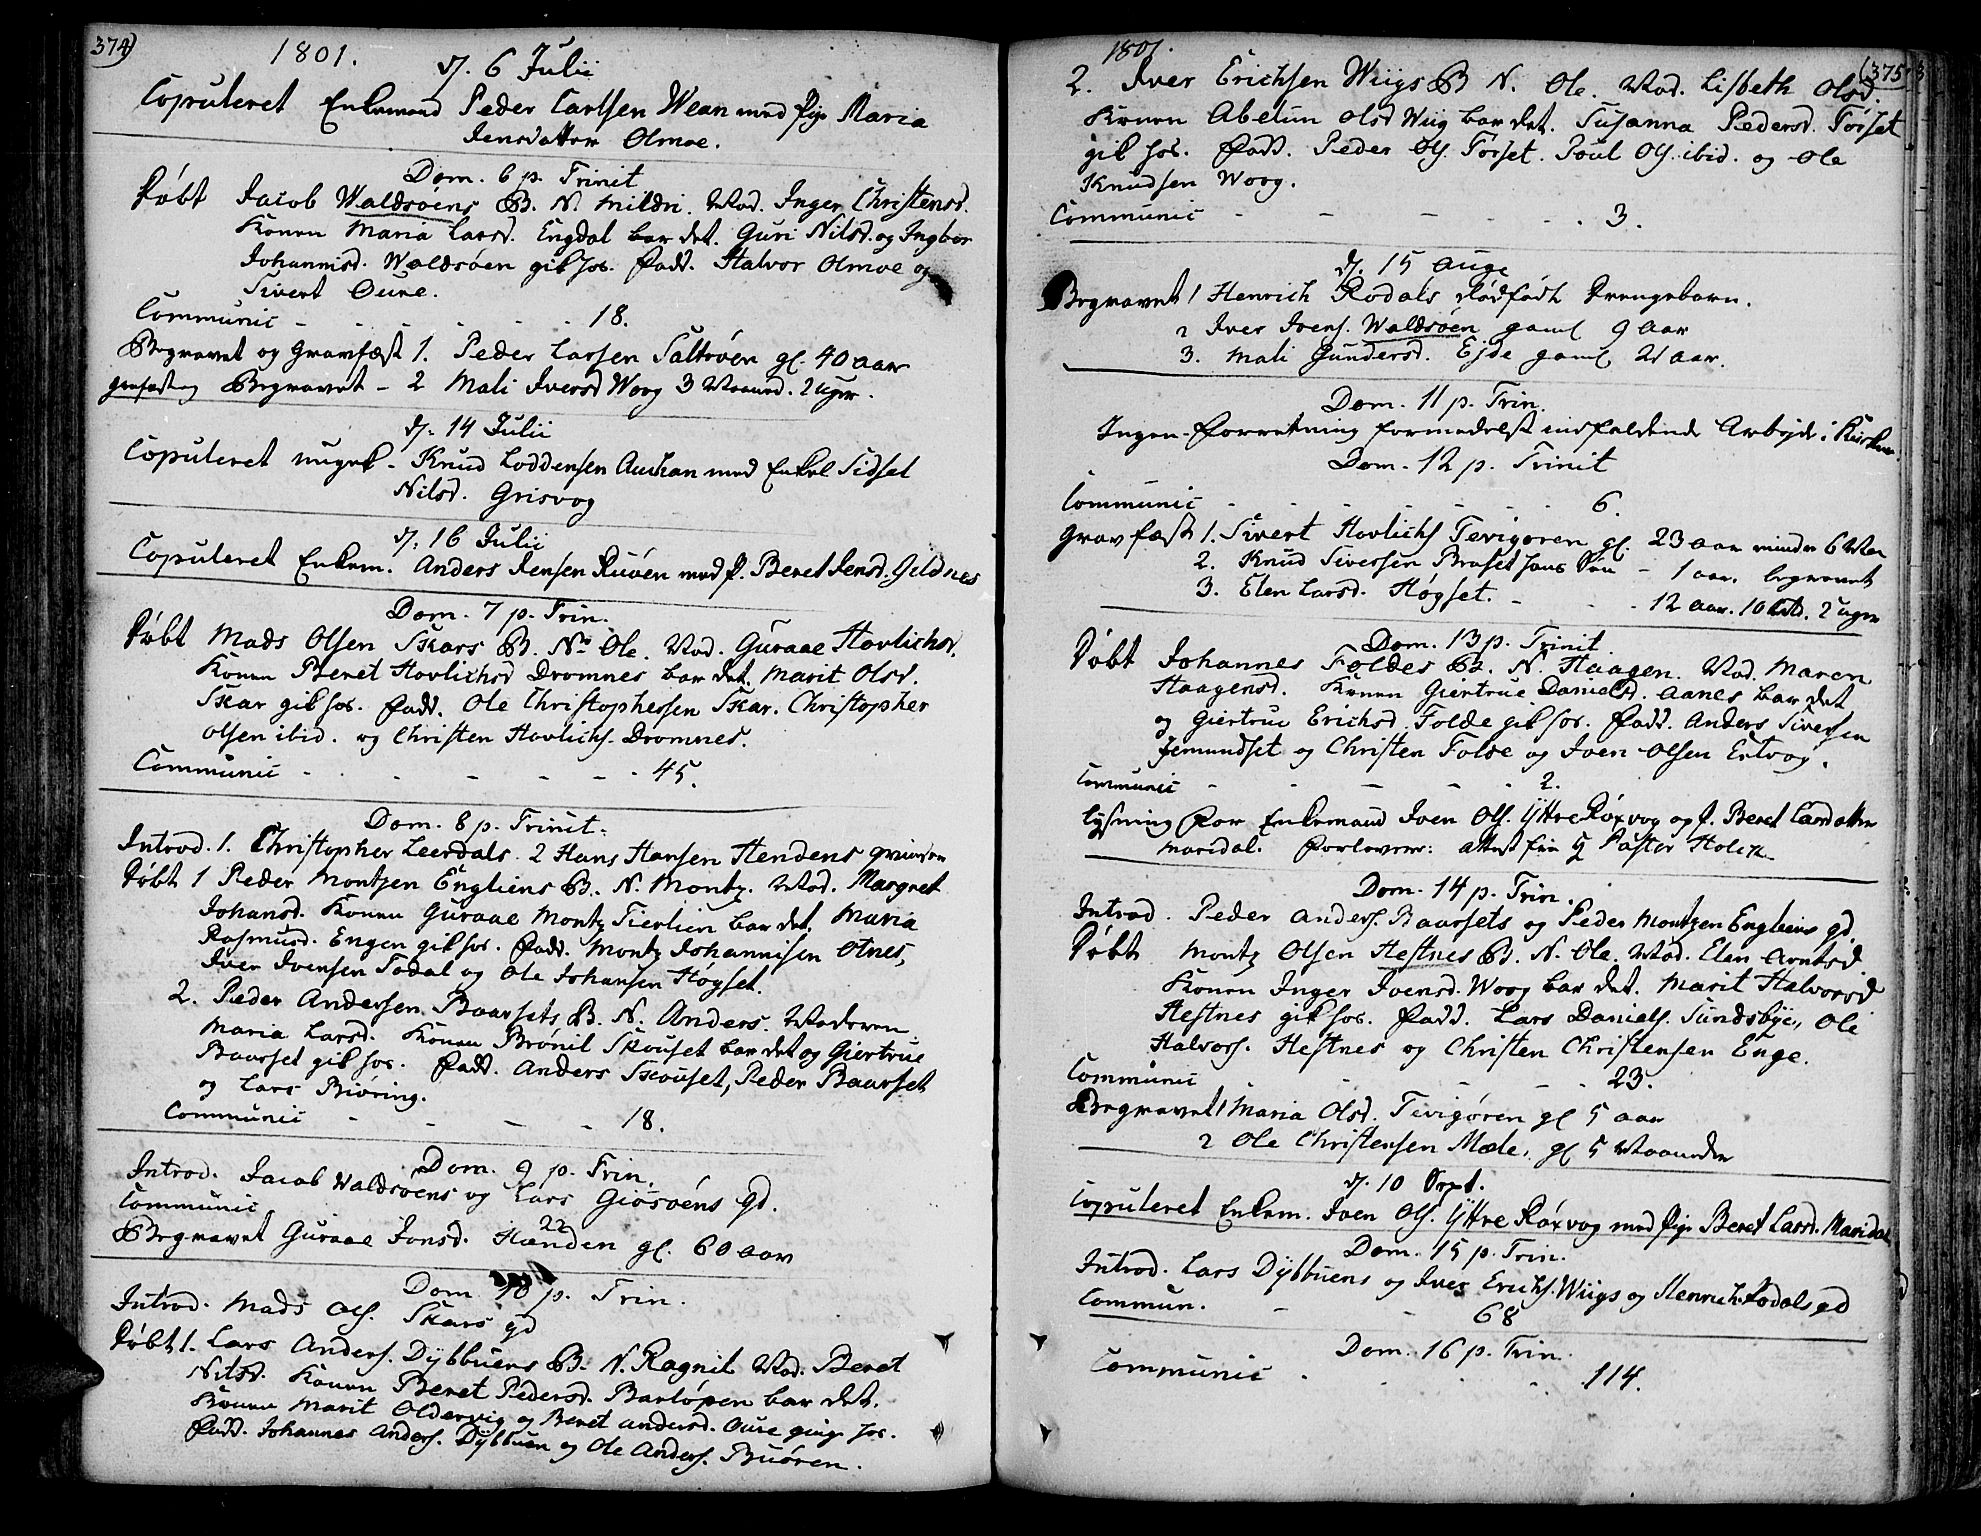 374)
1801.
d. 6 Julii
Copuleret Enkemand Peder Carlsen Wean med Pige Maria
Jensdatter Olmoe.
Dom. 6 p. Trinit
Døbt Jacob Waldsøens B. N. Mildri. Mod. Inger Christensd.
Konen Maria Larsd. Engdal bar det. Guri Nilsd. og Ingbor
Johannisd. Waldsøen gik hos. Fadd. Halvor Olmoe og
Sivert Oure.
Communic - - - - - 18.
Begravet og Gravfæst 1. Peder Larsen Saltrøen gl. 40 aar
grafæst og Begravet - 2 Mali Iversd Woog 3 Maaned. 2 uger.
d: 14 Julii
Copuleret ungk - Knud Loddensen Aukan med Enkel Sidsel
Nilsd. Grisvog
d: 16 Julii
Copuleret Enkem. Anders Jensen Ruøen med P. Beret Jensd. Gildnes
Dom. 7 p. Trin.
Døbt Mads Olsen Skars B. N. Ole. Mod. Guraae Hovlichsd.
Konen Beret Hovlichsd Dromnes bar det. Marit Olsd.
Skar gik hos. Fadd. Ole Christophersen Skar. Christopher
Olsen ibid. og Christen Hovlichs. Dromnes.
Communic - - - - - 45.
Dom. 8 p. Trinit.
Introd. 1. Christopher Leerdals. 2 Hans Hansen Hendens qvinder
Døbt 1 Peder Montzen Engliens B. N. Montz. Mod. Margret
Johansd. Konen Guraae Montz Tierlien bar det. Maria
Rasmusd. Engen gik hos. Fadd. Montz Johannisen Otnes,
Iver Ivensen Todal og Ole Johansen Høgset.
2. Peder Andersen Baarsets B. N. Anders. Moderen
Maria Larsd. Konen Brønil Skouset bar det og Giertrue
Baarset gik hos. Fadd. Anders Skouset, Peder Baarset
og Lars Biøring.
Communic - - - - 18.
Dom. 9 p. Trin.
Introd. Jacob Waldsøens og Lars Giøsøens qd.
Communic 22
Begravet Guraae Jonsd. Hænden gl. 60 aar
Dom 10 p. Trin.
Introd. Mads Ols. Skars qd
Døbt 1. Lars Anders. Dÿbbuens B. N. Ragnil Mod. Beret
Nilsd. Konen Beret Pedersd. Barløpen bar det.
Konen Marit Oldervig og Beret Andersd. Oure ging hos.
Fadd. Johannes Anders. Dÿbbuen og Ole Anders. Buøren.
1801.
(375
2. Iver Erichsen Wiigs B N. Ole. Mod. Lisbeth Olsd.
Konen Abelun Olsd Wiig bar det. Susanna Pedersd. Forset
gik hos. Fadd. Peder Ols. Forset. Poul Ols. ibid. og Ole
Knudsen Woog.
Communic - - - - - 3.
d. 15 Aug
Begravet 1 Henrich Rodals dødfødt Drengebarn.
2 Iver Ivens. Waldsøen gaml 9 Aar
3. Mali Gundersd. Ejde gaml 21 aar.
Dom. 11 p. Trin.
Ingen Forretning formedelst indfaldende Arbejde i Kirken.
Dom. 12 p. Trinit
Communic - - - - - 6.
Gravfæst 1. Sivert Hovlichs Tevigøren gl. 23 aar minder 6 Maa
2. Knud Siversen Braset hans Søn - 1 aar. begravet
3. Elen Larsd. Høgset. - - 12 aar. 10 M. 2 uger
Dom. 13 p. Trinit.
Døbt Johannes Foldes B. N. Haagen. Mod. Maren
Haagensd. Konen Giertrue Danielsd. Aanes bar det
og Giertrue Erichsd. Folde gik hos. Fadd. Anders Siversen
Jemundset og Christen Folde og Iven Olsen Ertvog.
Communic - - - - - 2.
Lysning For Enkemand Iven Ols. Ÿttre Røxvog og P. Beret Larsdatter
Maridal. Forlovere: attest fra Pastor Holck.
Dom. 14 p. Trin.
Introd. Peder Anders. Baarsets og Peder Montzen Engliens qd
Døbt Montz Olsen Hestnes B. N. Ole. Mod. Elen Arntsd
Konen Inger Ivensd. Woog bar det. Marit Halvorsd
Hestnes gik hos. Fadd. Lars Daniels. Sundsbye, Ole
Halvors. Hestnes og Christen Christensen Enge.
Communic - - - - 23.
Begravet 1 Maria Olsd. Tevigøren gl 5 aar
2 Ole Christensen Mæle. gl 5 Maaneder
d. 10 Sept.
Copuleret Enkem. Iven Ols. Ÿttre Røxvog med Pige Beret Larsd. Maridal
Dom. 15 p. Trin.
Introd. Lars Dÿbbuens og Iver Erichs. Wiigs og Henrich Rodals qd
Commun. - - 68
Dom. 16 p. Trin.
Communic - - - 114.